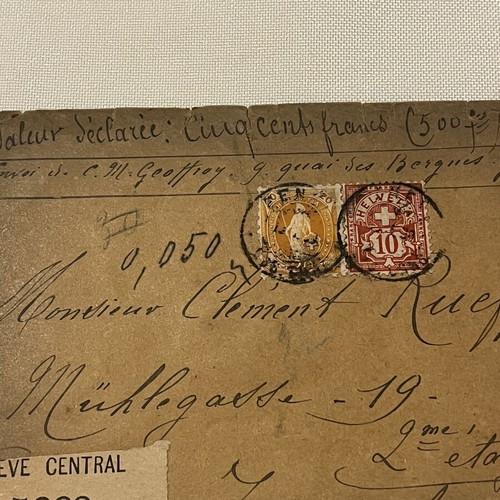 Valeur déclarée: Cinq cents francs (500 frs
Envoi de C. M. Geoffroy, 9 quai des Bergues
HELVETIA
10
0,050
Monsieur Clément
Mühlegasse - 19 -
2me
EVE CENTRAL